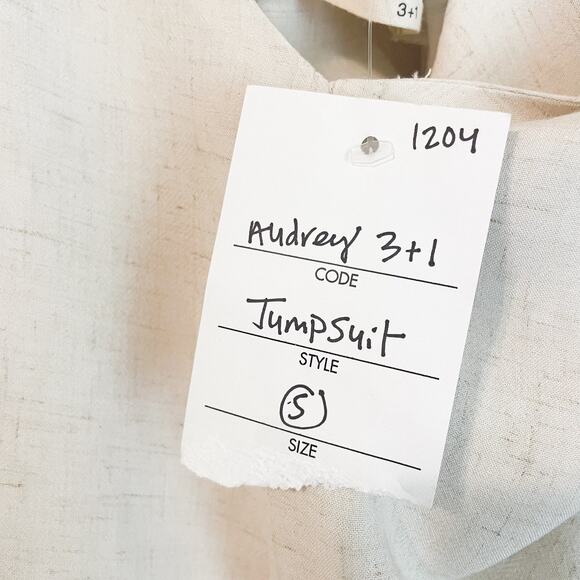 3+1
1204
Audrey 3+1
CODE
Jumpsuit
STYLE
S
SIZE